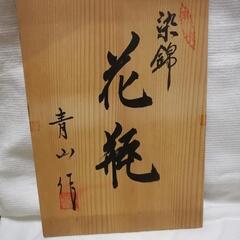 染錦
花瓶
青山作